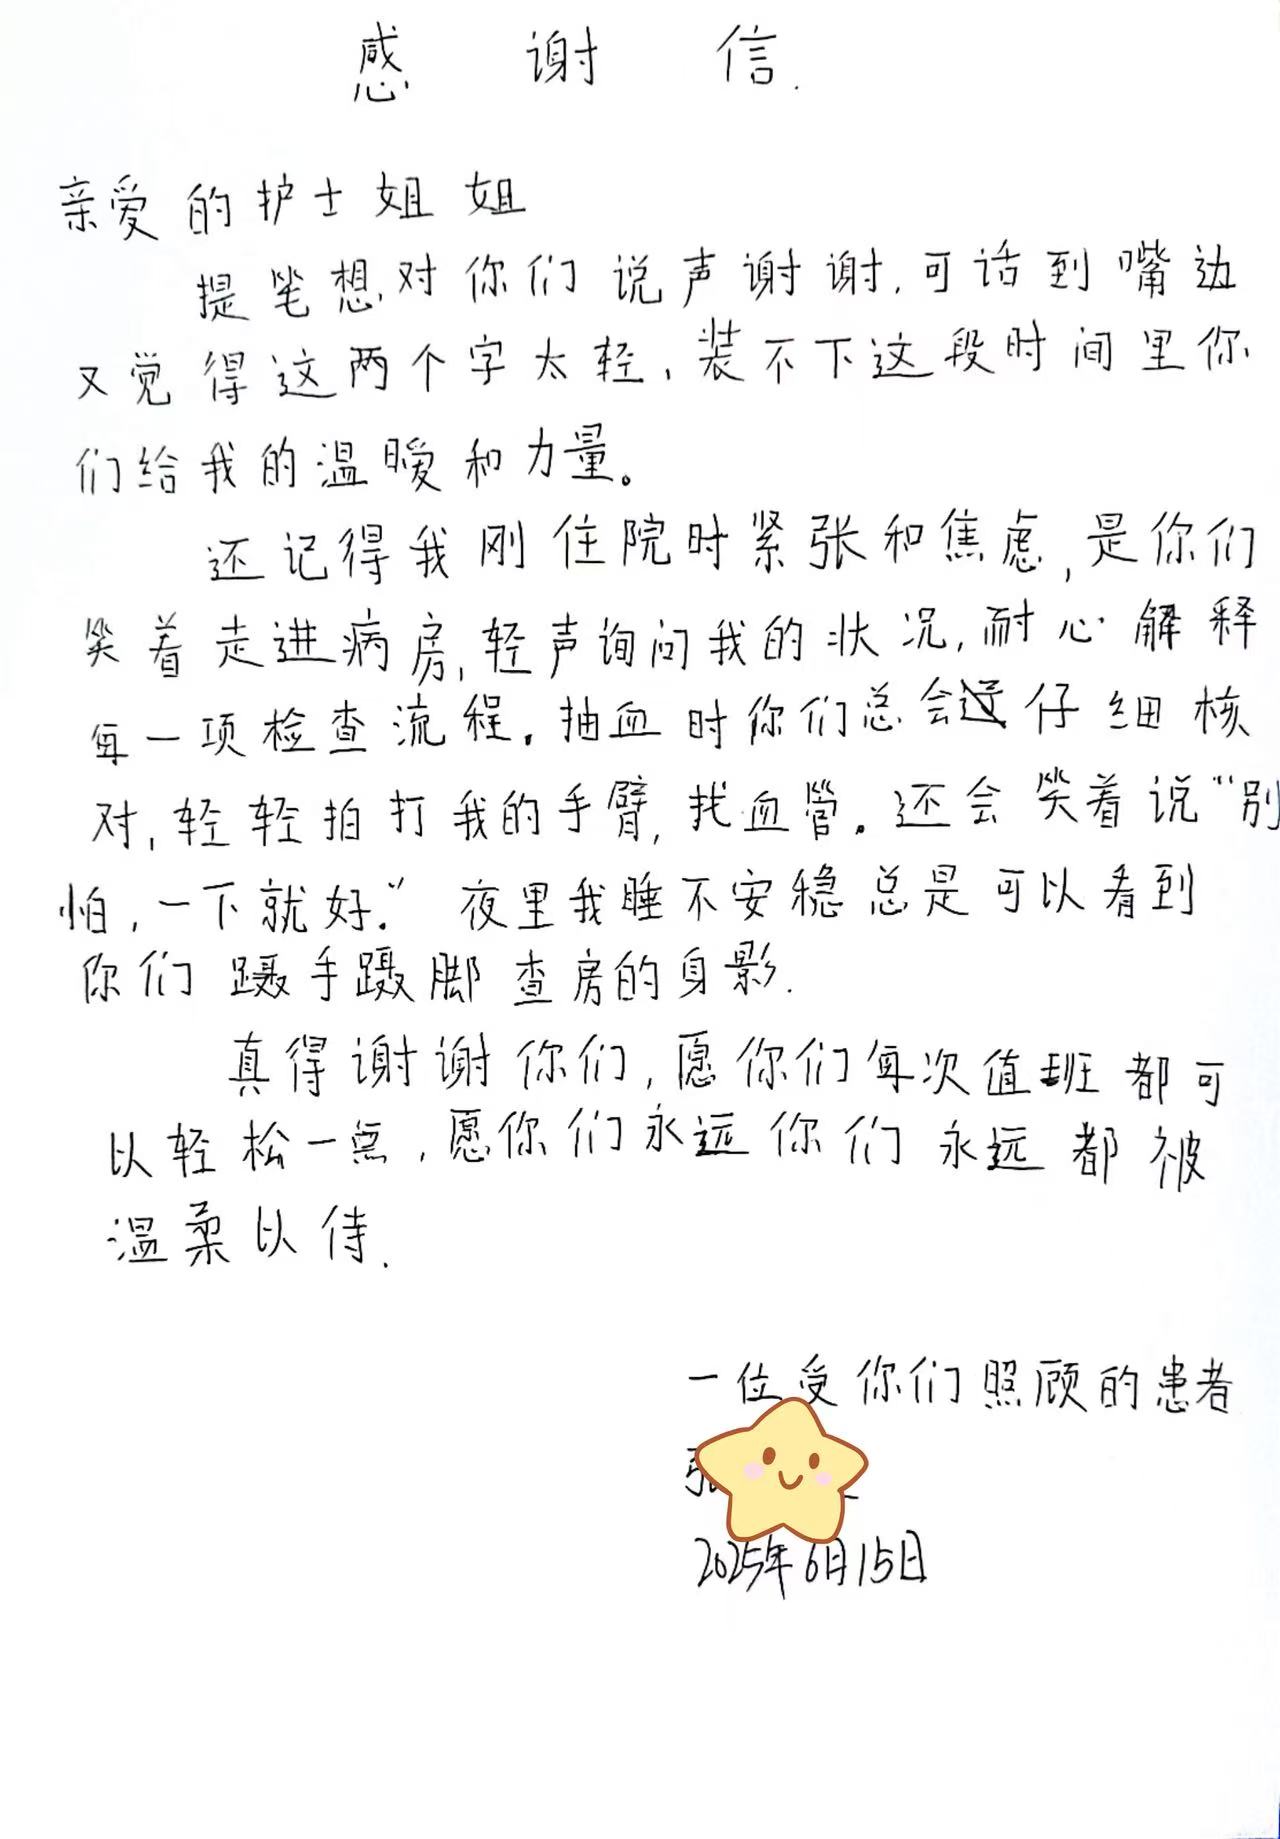 感谢信.
亲爱的护士姐姐
提笔想对你们说声谢谢,可话到嘴边
又觉得这两个字太轻,装不下这段时间里你
们给我的温暖和力量。
还记得我刚住院时紧张和焦虑,是你们
笑着走进病房,轻声询问我的状况,耐心解释
每一项检查流程.抽血时你们总会仔细核
对,轻轻拍打我的手臂,找血管。还会笑着说“别
怕,一下就好.”夜里我睡不安稳总是可以看到
你们蹑手蹑脚查房的身影.
真得谢谢你们,愿你们每次值班都可
以轻松一点,愿你们永远你们永远都被
温柔以待.
一位受你们照顾的患者
张
2025年6月15日